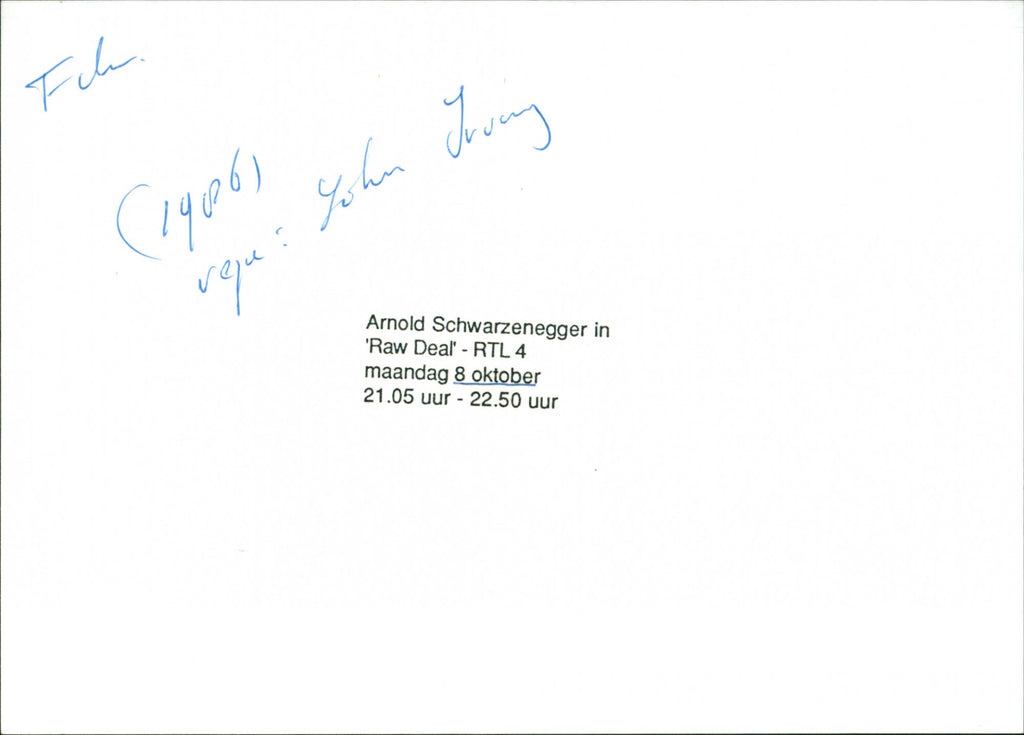 (1986)
regie: John Irving
Arnold Schwarzenegger in
'Raw Deal' - RTL 4
maandag 8 oktober
21.05 uur - 22.50 uur